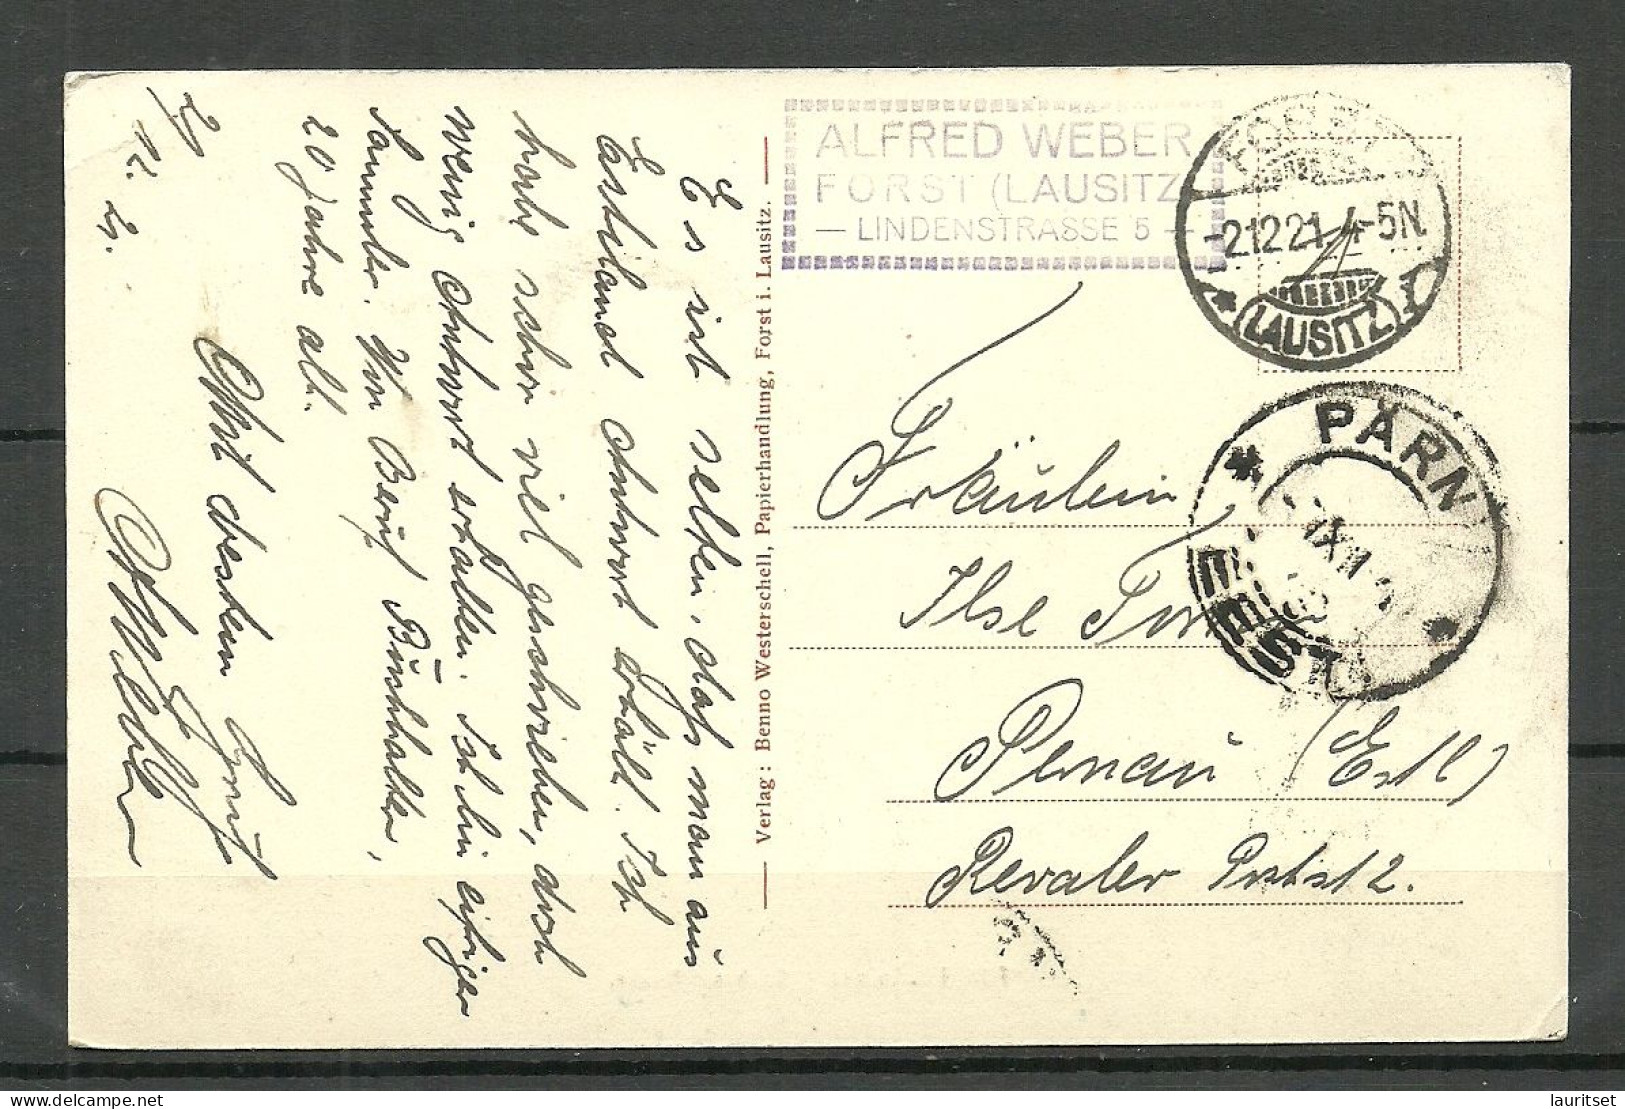 ALFRED WEBER
FORST (LAUSITZ
— LINDENSTRASSE 5 —
FORST
-2.12.21. 4-5N
(LAUSITZ)
* PÄRNU *
-7.XII
EESTI
Fräulein
Ilse
Pernau (Estl)
Revaler Poststr 2.
— Verlag: Benno Westerschell, Papierhandlung, Forst i. Lausitz. —
Es ist selten, dass man aus
Estland Antwort erhält. Ich
habe schon viel geschrieben, doch
wenig Antwort erhalten. Ich bin eifriger
Sammler. Von Beruf Buchhalter,
20 Jahre alt.
Mit bestem Gruß
A Weber
2/ 12. 21.
lauritset